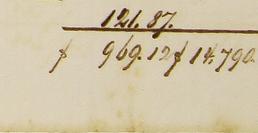 121.87.
$ 969.12 $ 14.790.